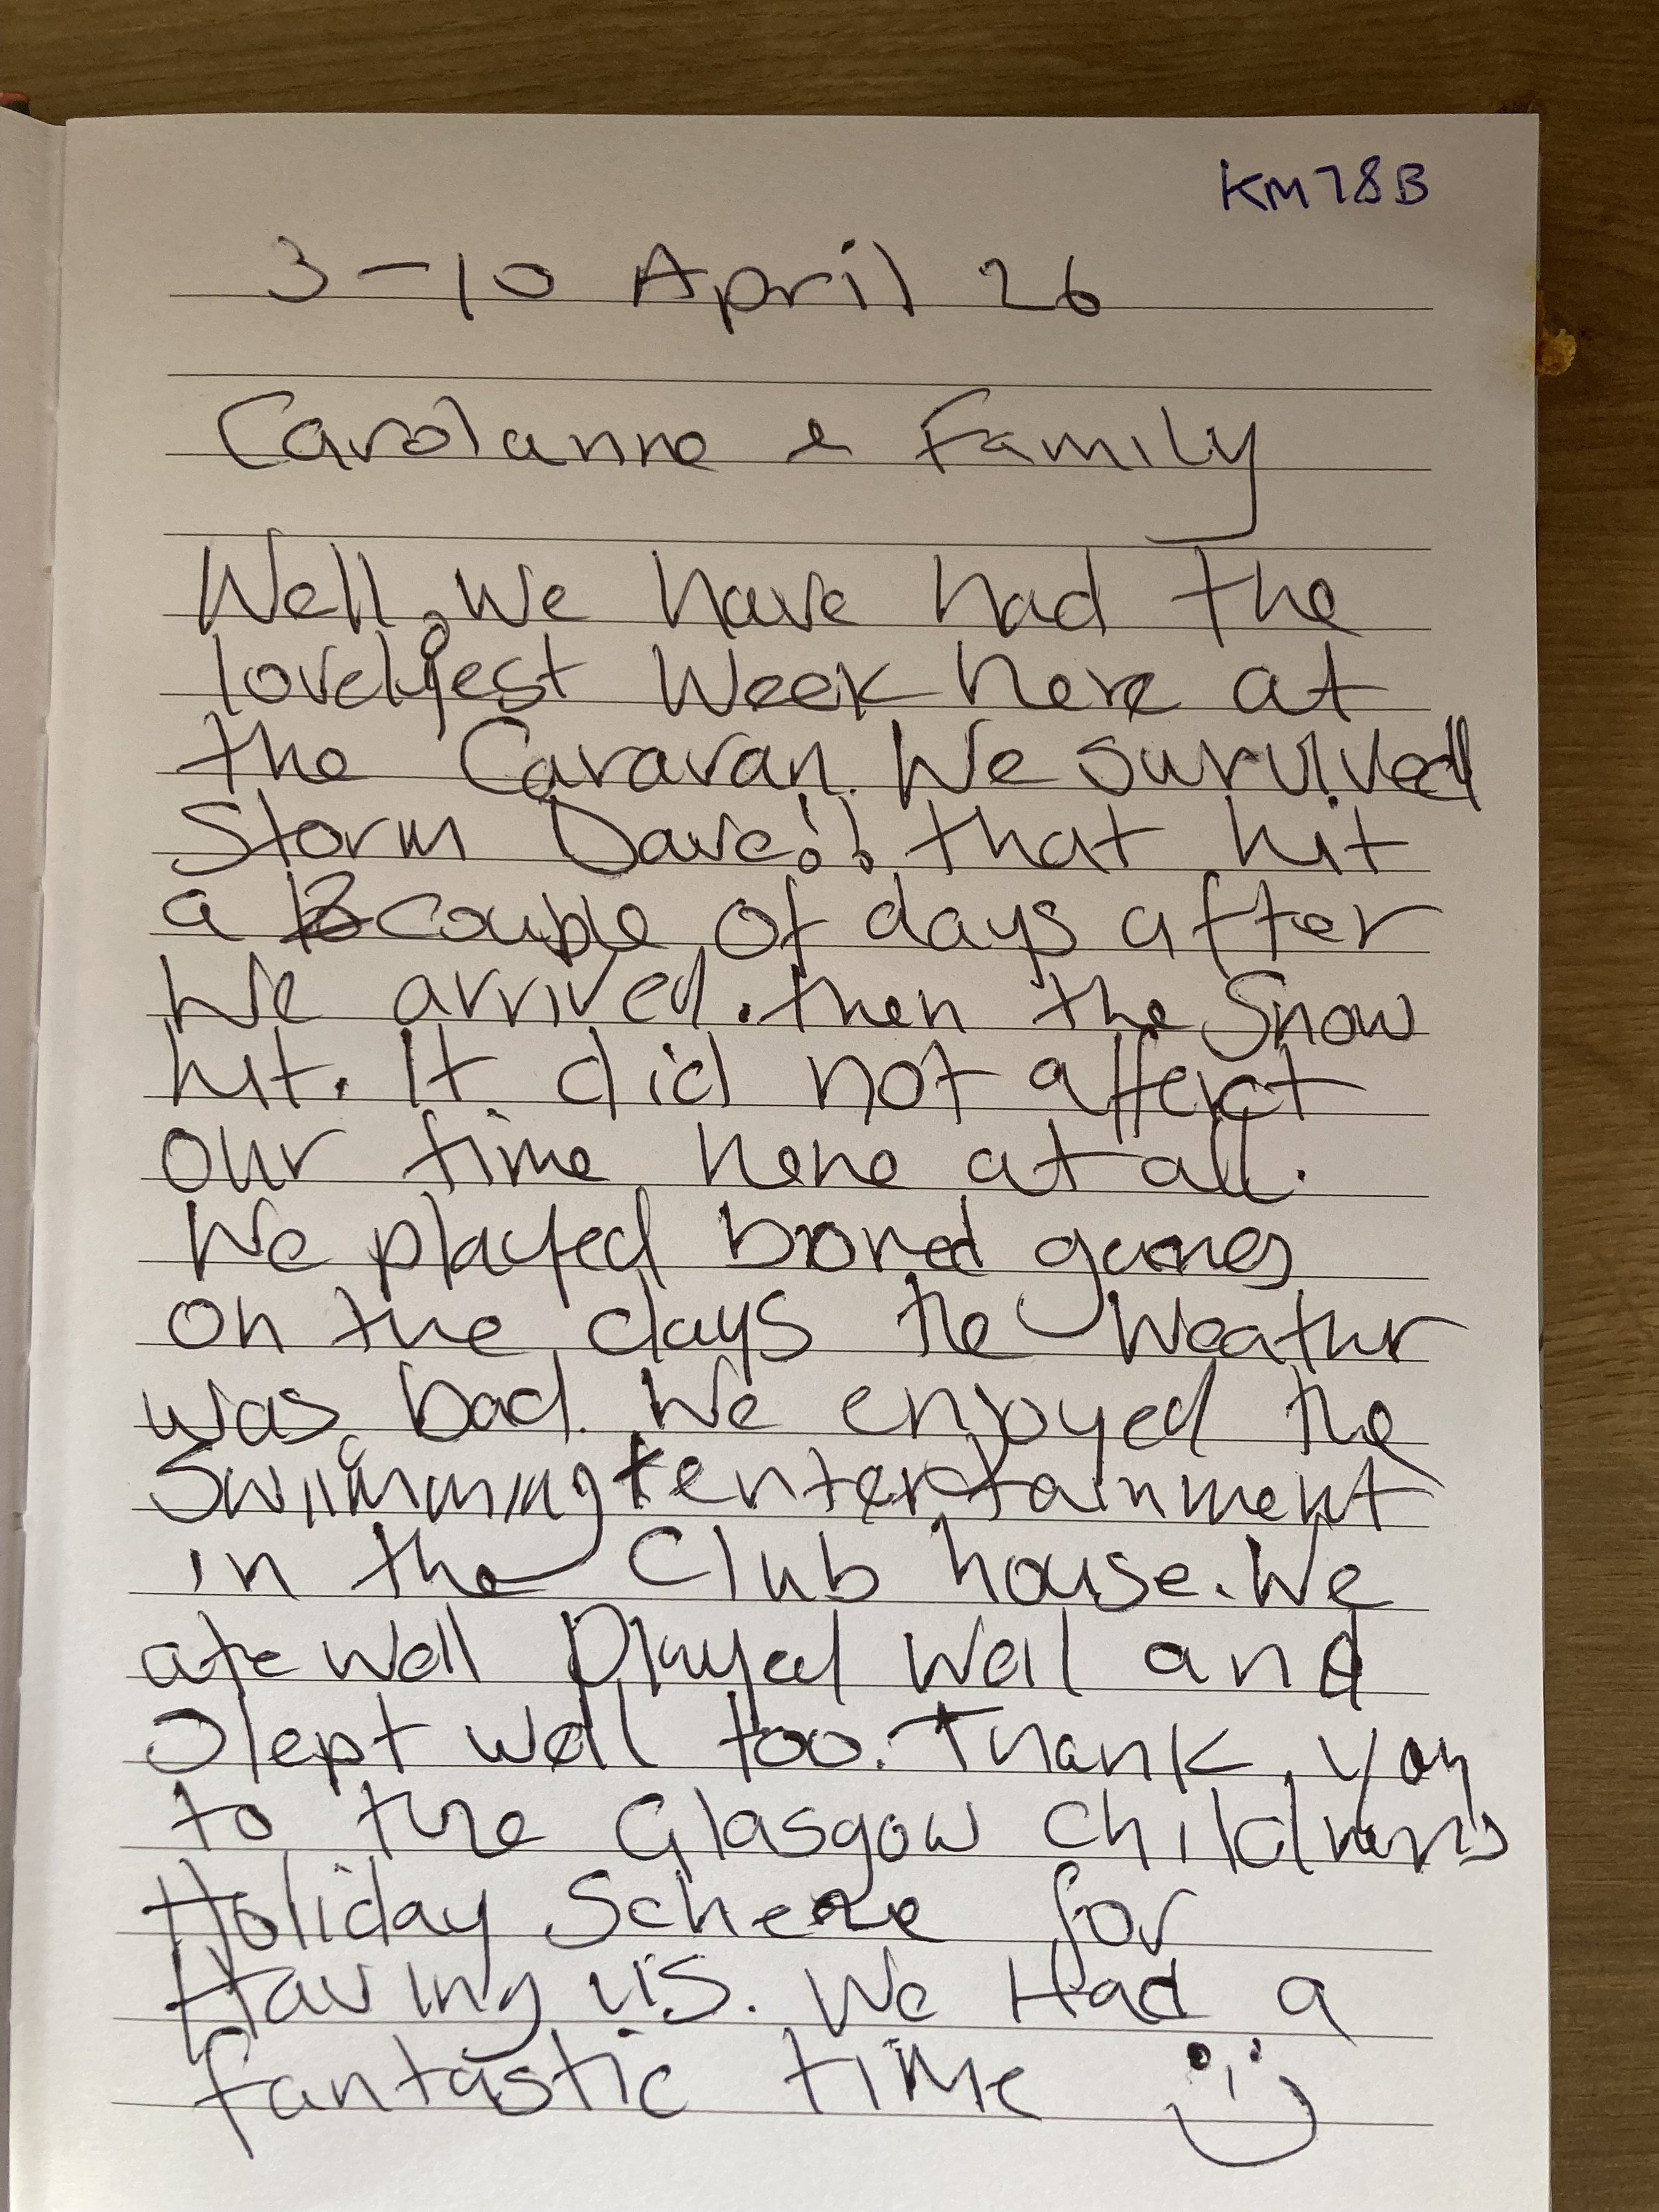 KM78B
3-10 April 26
Carolanne & Family
Well, We have had the
lovelyest Week here at
the Caravan. We survived
Storm Dave!! that hit
a couple of days after
We arrived. then the Snow
hit. It did not affect
our time here at all.
We played bored games
on the days the Weather
was bad. We enjoyed the
Swimming + entertainment
in the Club house. We
ate well Played well and
Slept well too. Thank you
to the Glasgow childrens
Holiday Scheme for
Having us. We Had a
fantastic time